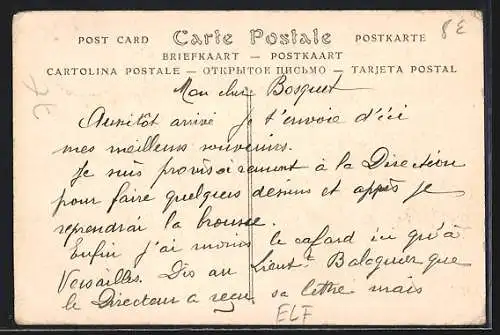 POST CARD Carte Postale POSTKARTE
BRIEFKAART — POSTKAART
CARTOLINA POSTALE — ОТКРЫТОЕ ПИСЬМО — TARJETA POSTAL
8E
Mon cher Bosquet
Aussitôt arrivé je t'envoie d'ici
mes meilleurs souvenirs.
Je suis provisoirement à la Direction
pour faire quelques dessins et après je
reprendrai la brousse.
Enfin j'ai moins le cafard ici qu'à
Versailles. Dis au Lieut^t Balaguer que
le Directeur a reçu sa lettre mais
ELF